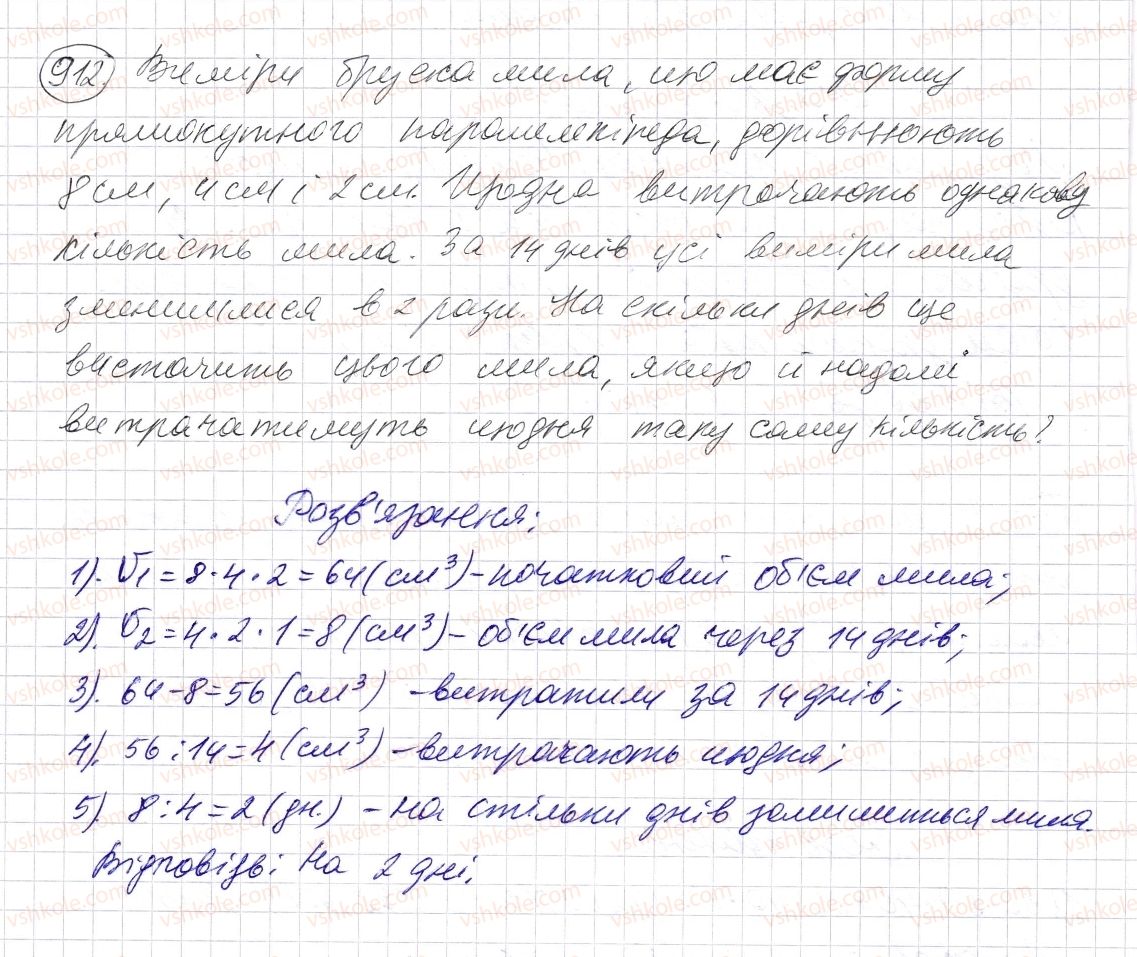 912. Виміри бруска мила, що має форму
прямокутного паралелепіпеда, дорівнюють
8 см, 4 см і 2 см. Щодня витрачають однакову
кількість мила. За 14 днів усі виміри мила
зменшилися в 2 рази. На скільки днів ще
вистачить цього мила, якщо й надалі
витрачатимуть щодня таку саму кількість?
Розв'язання:
1). V₁ = 8 · 4 · 2 = 64 (см³) - початковий об'єм мила;
2). V₂ = 4 · 2 · 1 = 8 (см³) - об'єм мила через 14 днів;
3). 64 - 8 = 56 (см³) - витратили за 14 днів;
4). 56 : 14 = 4 (см³) - витрачають щодня;
5). 8 : 4 = 2 (дн.) - на стільки днів залишиться мила.
Відповідь: На 2 дні.